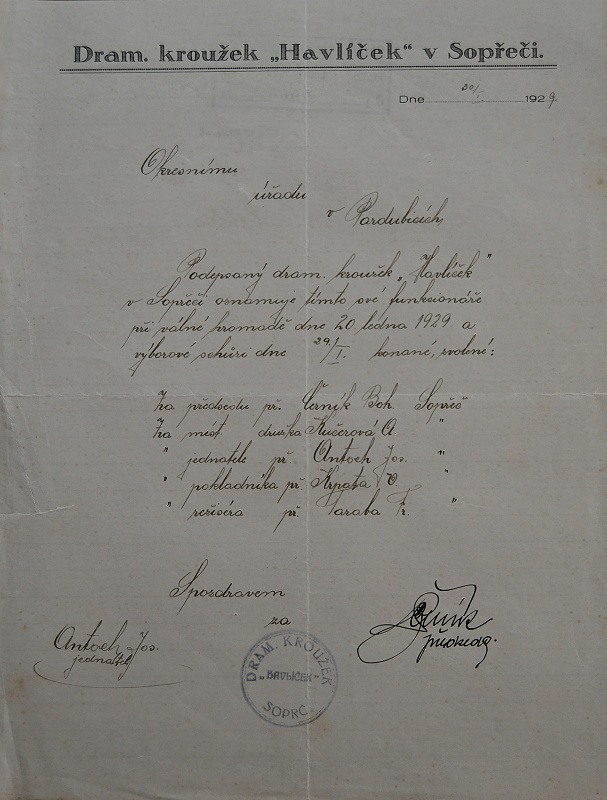 Dram. kroužek „Havlíček“ v Sopřeči.
Dne 30/I. 1929.
Okresnímu
úřadu
v Pardubicích,
Podepsaný dram. kroužek „Havlíček"
v Sopřeči oznamuje tímto své funkcionáře
při válné hromadě dne 20. ledna 1929 a
výborové schůzi dne 29./I. konané, zvolené:
Za předsedu př. Černík Boh. Sopřeč
Za míst. družka Kučerová A. "
" jednatele př. Antoch Jos. "
" pokladníka př. Krpata V. "
" režiséra př. Taraba Fr. "
S pozdravem
za
Antoch Jos.
jednatel
Černík
předseda.
DRAM. KROUŽEK
„HAVLÍČEK"
SOPRČ